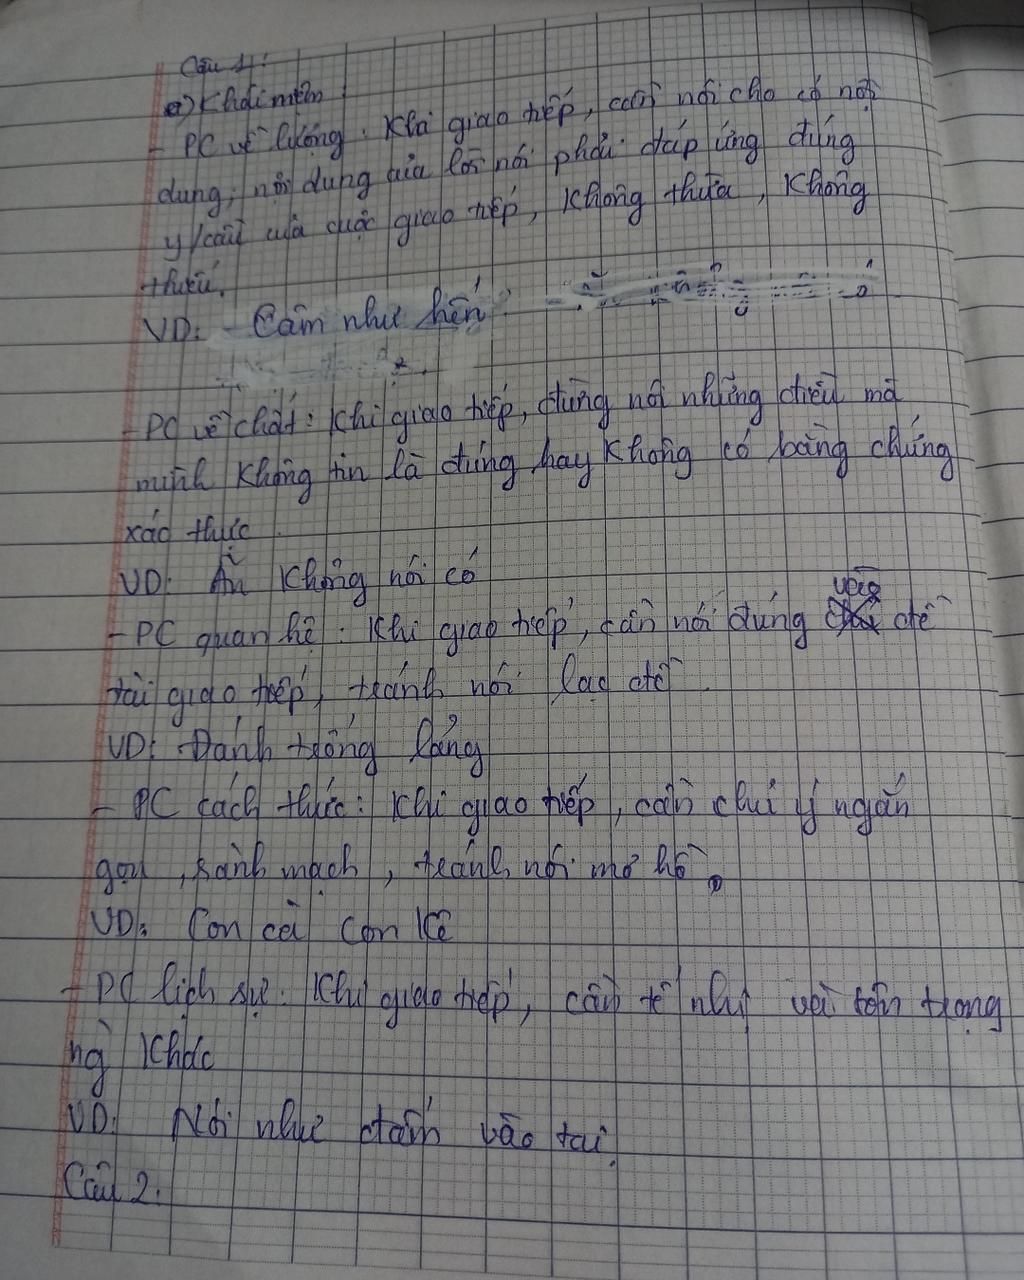 Câu 1:
a) Khái niệm
- PC về lượng: Khi giao tiếp, cần nói cho có nội
dung, nội dung của lời nói phải đáp ứng đúng
y/cầu của cuộc giao tiếp, không thừa, không
thiếu.
VD: Câm như hến
- PC về chất: Khi giao tiếp, đừng nói những điều mà
mình không tin là đúng hay không có bằng chứng
xác thực.
VD: Ăn không nói có
- PC quan hệ: Khi giao tiếp, cần nói đúng vào đề
tài giao tiếp, tránh nói lạc đề.
VD: Đánh trống lảng
- PC cách thức: Khi giao tiếp, cần chú ý ngắn
gọn, rành mạch, tránh nói mơ hồ.
VD: Con cà con kê
- PC lịch sự: Khi giao tiếp, cần tế nhị và tôn trọng
ng khác
VD: Nói như đấm vào tai.
Câu 2.